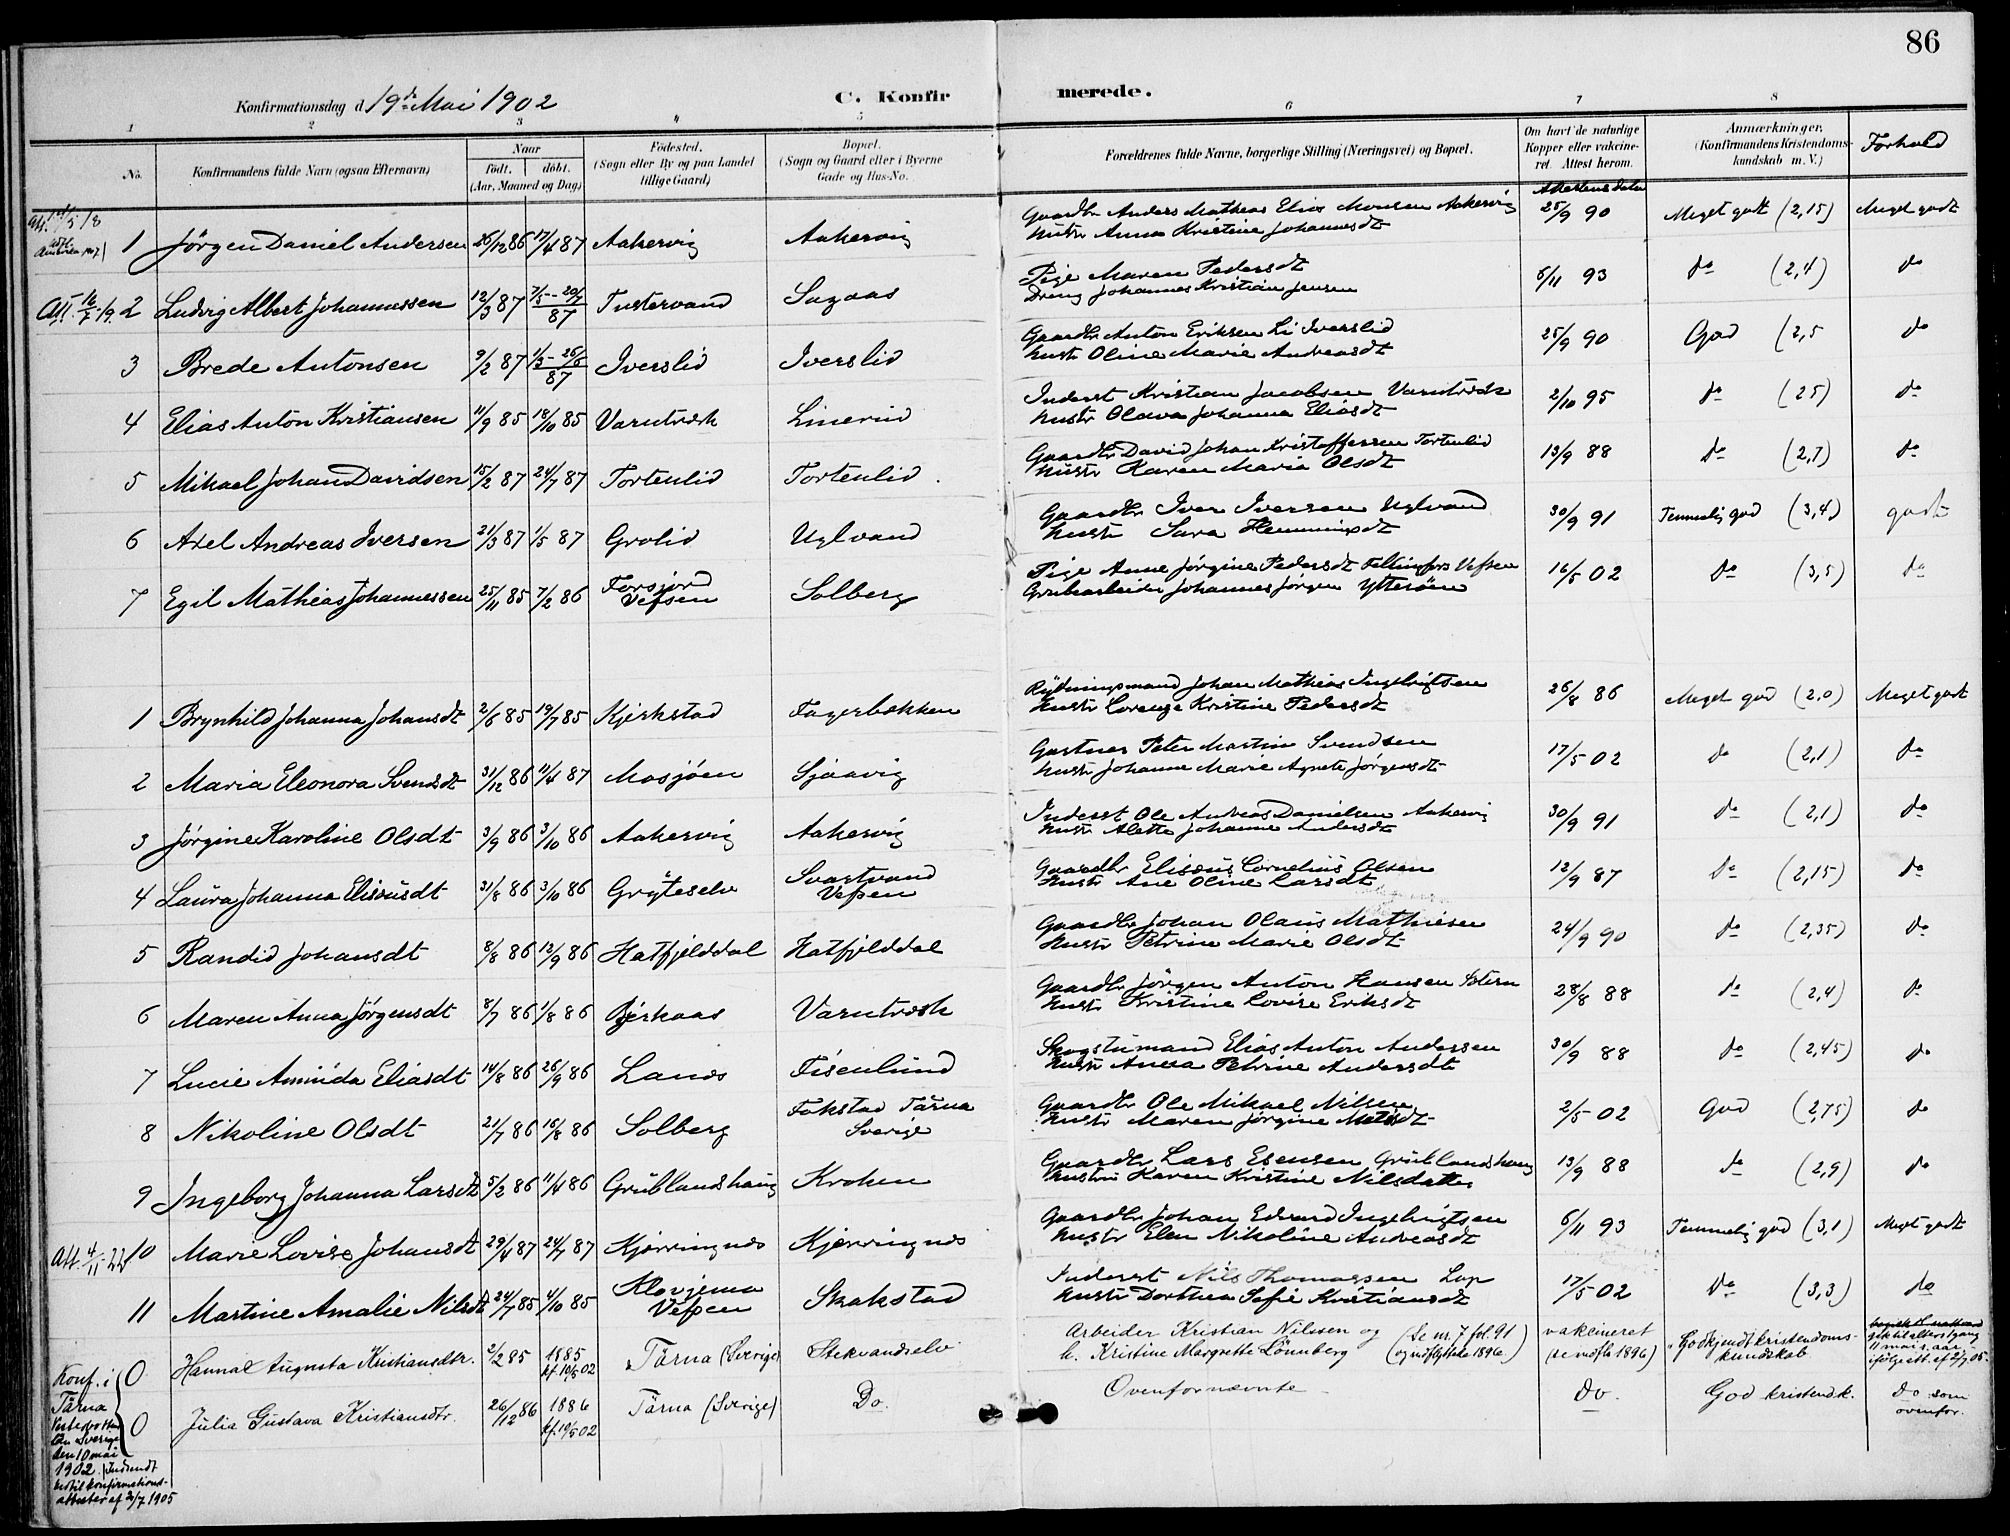 86
Konfirmationsdag d. 19de Mai 1902
C. Konfirmerede.
1 2 3 4 5 6 7 8
No. Konfirmandens fulde Navn (ogsaa Efternavn) Naar født. døbt. (Aar, Maaned og Dag) Fødested. (Sogn eller By og paa Landet tillige Gaard) Bopæl. (Sogn og Gaard eller i Byerne Gade og Hus-No. Forældrenes fulde Navne, borgerlige Stilling (Næringsvei) og Bopæl. Om havt de naturlige Kopper eller vaccineret. Attest herom. Anmærkninger. (Konfirmandens Kristendomskundskab m. V.) Forhold
Attestens dato
1 Jørgen Daniel Andersen 26/12 86 17/4 87 Aakervig Aakervig Gaardbr Anders Mathias Elias Monsen Aakervig 25/9 90 Meget godt (2,15) Meget godt
Hustr Anna Kristine Johannesdt
Att. 16/7 19. 2 Ludvig Albert Johannessen 12/3 87 7/5 - 20/7 87 Tustervand Sagaas Pige Maren Pedersdt 6/11 93 do (2,4) do
Dreng Johannes Kristian Jensen
3 Brede Antonsen 9/2 87 1/3 - 26/6 87 Iverslid Iverslid Gaardbr Anton Eriksen Li Iverslid 25/9 90 God (2,5 do
Hustr Oline Marie Andreasdt
4 Elias Anton Kristiansen 11/9 85 18/10 85 Varntræsk Linerud Inderst Kristian Jacobsen Varntræsk 2/10 95 do (25) do
Hustr Olava Johanna Eliasdt
5 Mikael Johan Davidsen 15/2 87 24/7 87 Tortenlid Tortenlid Gaardbr David Johan Kristoffersen Tortenlid 13/9 88 do (2,7) do
Hustr Karen Maria Olsdt
6 Axel Andreas Iversen 21/3 87 1/5 87 Grolid Uglvand Gaardbr Iver Iversen Uglvand 30/9 91 Temmelig god (3,4) godt
Hustr Sara Hemmingsdt
7 Egil Mathias Johannessen 25/11 85 7/2 86 Forsjord Vefsen Solberg Pige Anne Jørgine Pedersdt Fellingfors Vefsen 16/5 02 do (3,5) do
Grubearbeider Johannes Jørgen Ytterøen
1 Brynhild Johanna Johansdt 2/6 85 19/7 85 Kjerkstad Fagerbækken Rydningsmand Johan Mathias Ingebrigtsen 26/8 86 Meget god (2,0) Meget godt
Hustr Lorense Kristine Pedersdt
2 Maria Eleonora Svendsdt 31/12 86 11/4 87 Mosjøen Sjaavig Gartner Peter Martin Svendsen 17/5 02 do (2,1) do
Hustr Johanne Marie Agnete Jørgensdt
3 Jørgine Karoline Olsdt 3/9 86 3/10 86 Aakervig Aakervig Inderst Ole Andreas Danielsen Aakervig 30/9 91 do (2,1) do
Hustr Alette Johanne Andersdt
4 Laura Johanna Elisæusdt 31/8 86 3/10 86 Gryteselv Svartvand Vefsen Gaardbr Elisæus Cornelius Olsen 12/9 87 do (2,15) do
Hustr Ane Oline Larsdt
5 Randid Johansdt 8/8 86 12/9 86 Hatfjelddal Hatfjelddal Gaardbr Johan Olaus Mathisen 24/9 90 do (2,35) do
Hustr Petrine Marie Olsdt
6 Maren Anna Jørgensdt 8/7 86 1/8 86 Bjerkaas Varntræsk Gaardbr Jørgen Anton Hansen 28/8 88 do (2,4) do
Hustr Kristine Lovise Eriksdt
7 Lucie Aminda Eliasdt 14/8 86 26/9 86 Lanes Fisenlund Skogstumand Elias Anton Andersen 30/9 88 do (2,45) do
Hustr Anna Petrine Andersdt
8 Nikoline Olsdt 21/7 86 15/8 86 Solberg Fokstad Tärna Sverige Gaardbr Ole Mikael Nilsen 2/5 02 God (2,75) do
Hustr Maren Jørgine Matsdt
9 Ingeborg Johanna Larsdt 5/2 86 11/4 86 Grublandshaug Kroken Gaardbr Lars Esensen Grublandshaug 13/9 88 do (2,9) do
Hustru Karen Kristine Nilsdatter
Att. 4/11 22 10 Marie Lovise Johansdt 29/4 87 24/7 87 Kjerringnes Kjerringnes Gaardbr Johan Edvard Ingebrigtsen 6/11 93 Temmelig god (3,1) Meget godt
Hustr Elen Nikoline Andreasdt
11 Martine Amalie Nilsdt 24/7 85 4/10 85 Klovjemo Vefsen Skakstad Inderst Nils Thomassen Lap 17/5 02 do (3,3) do
Hustr Dorthea Sofie Kristiansdt
0 Hannal Augusta Kristiansdtr. 2/2 85 1885 kf. 10/5 02 Tärna (Sverige) Stekvandselv Arbeider Kristian Nilssen og (Se nr. 7 fol. 91) vakcineret Godkjendt kristendomskundskab
h. Kristine Margrette Lönnberg (og indflyttede 1896) (se indfl. 1896)
11 mai s. aar, ifølge att. af 2/7 05.
0 Julia Gustava Kristiansdtr. 26/12 86 1886 kf. 10/5 02 Tärna (Sverige) Do. Ovenfornævnte Do. God kristendk. Do som ovenfor.
Konf. i Tärna
den 10 mai
1902. Indsendt
konfirmations-
attester af 2/7 1905